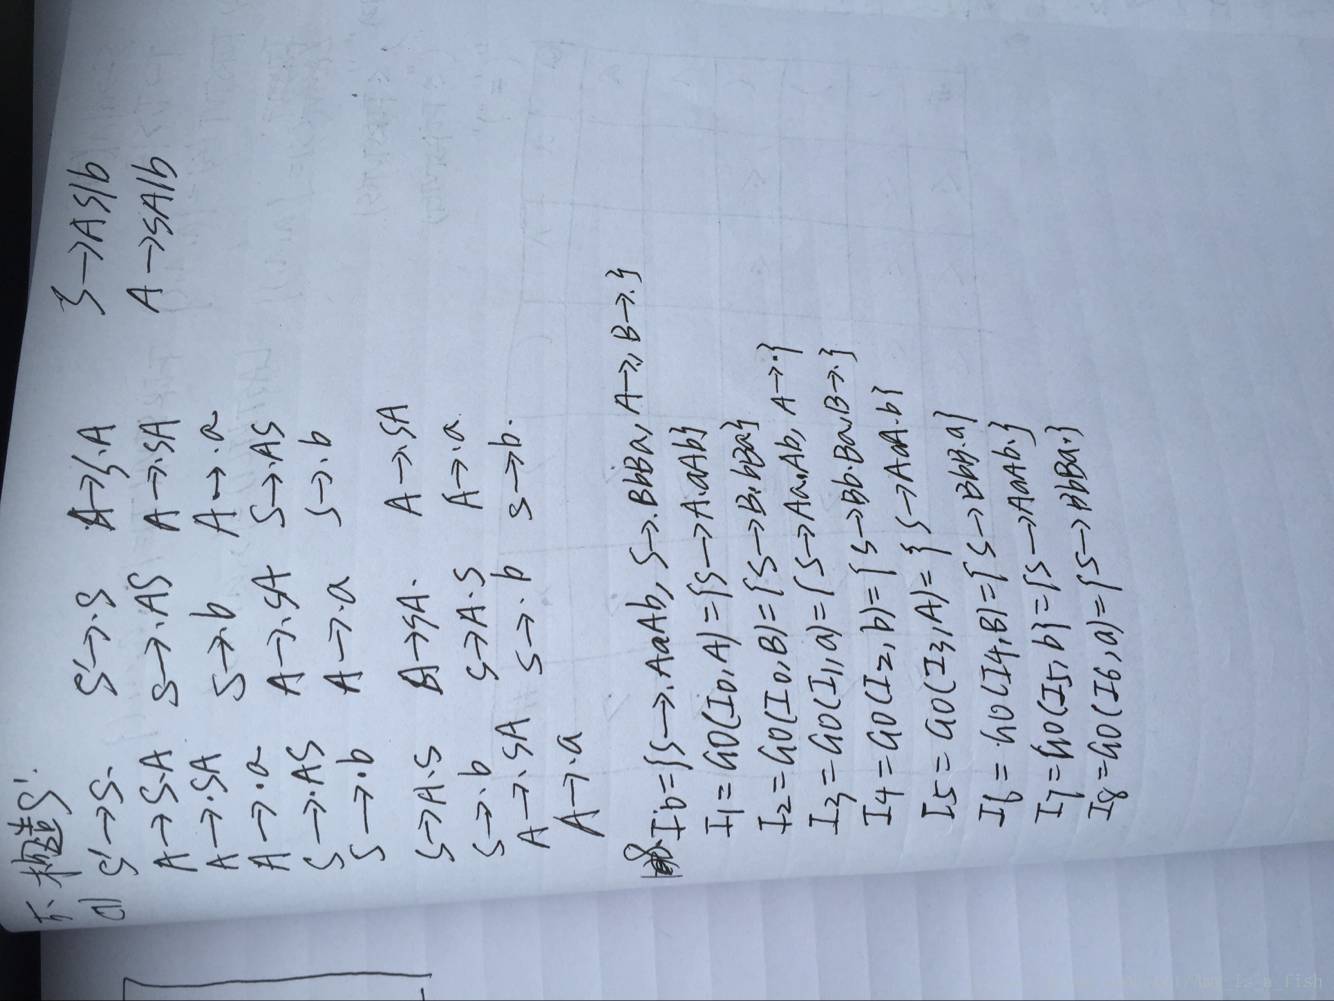 5、构造S'.
a) S'→S. S'→.S A→S.A S→AS|b
A→S.A S→.AS A→.SA A→SA|b
A→.SA S→.b A→.a
A→.a A→.SA S→.AS
S→.AS A→.a S→.b
S→.b
S→A.S A→SA. A→.SA
S→.b S→A.S A→a.
A→.SA S→.b S→b.
A→.a
8. I0={S→.AaAb, S→.BbBa, A→., B→.}
I1=GO(I0,A)={S→A.aAb}
I2=GO(I0,B)={S→B.bBa}
I3=GO(I1,a)={S→Aa.Ab, A→.}
I4=GO(I2,b)={S→Bb.Ba,B→.}
I5=GO(I3,A)={S→AaA.b}
I6=GO(I4,B)={S→BbB.a}
I7=GO(I5,b)={S→AaAb.}
I8=GO(I6,a)={S→BbBa.}